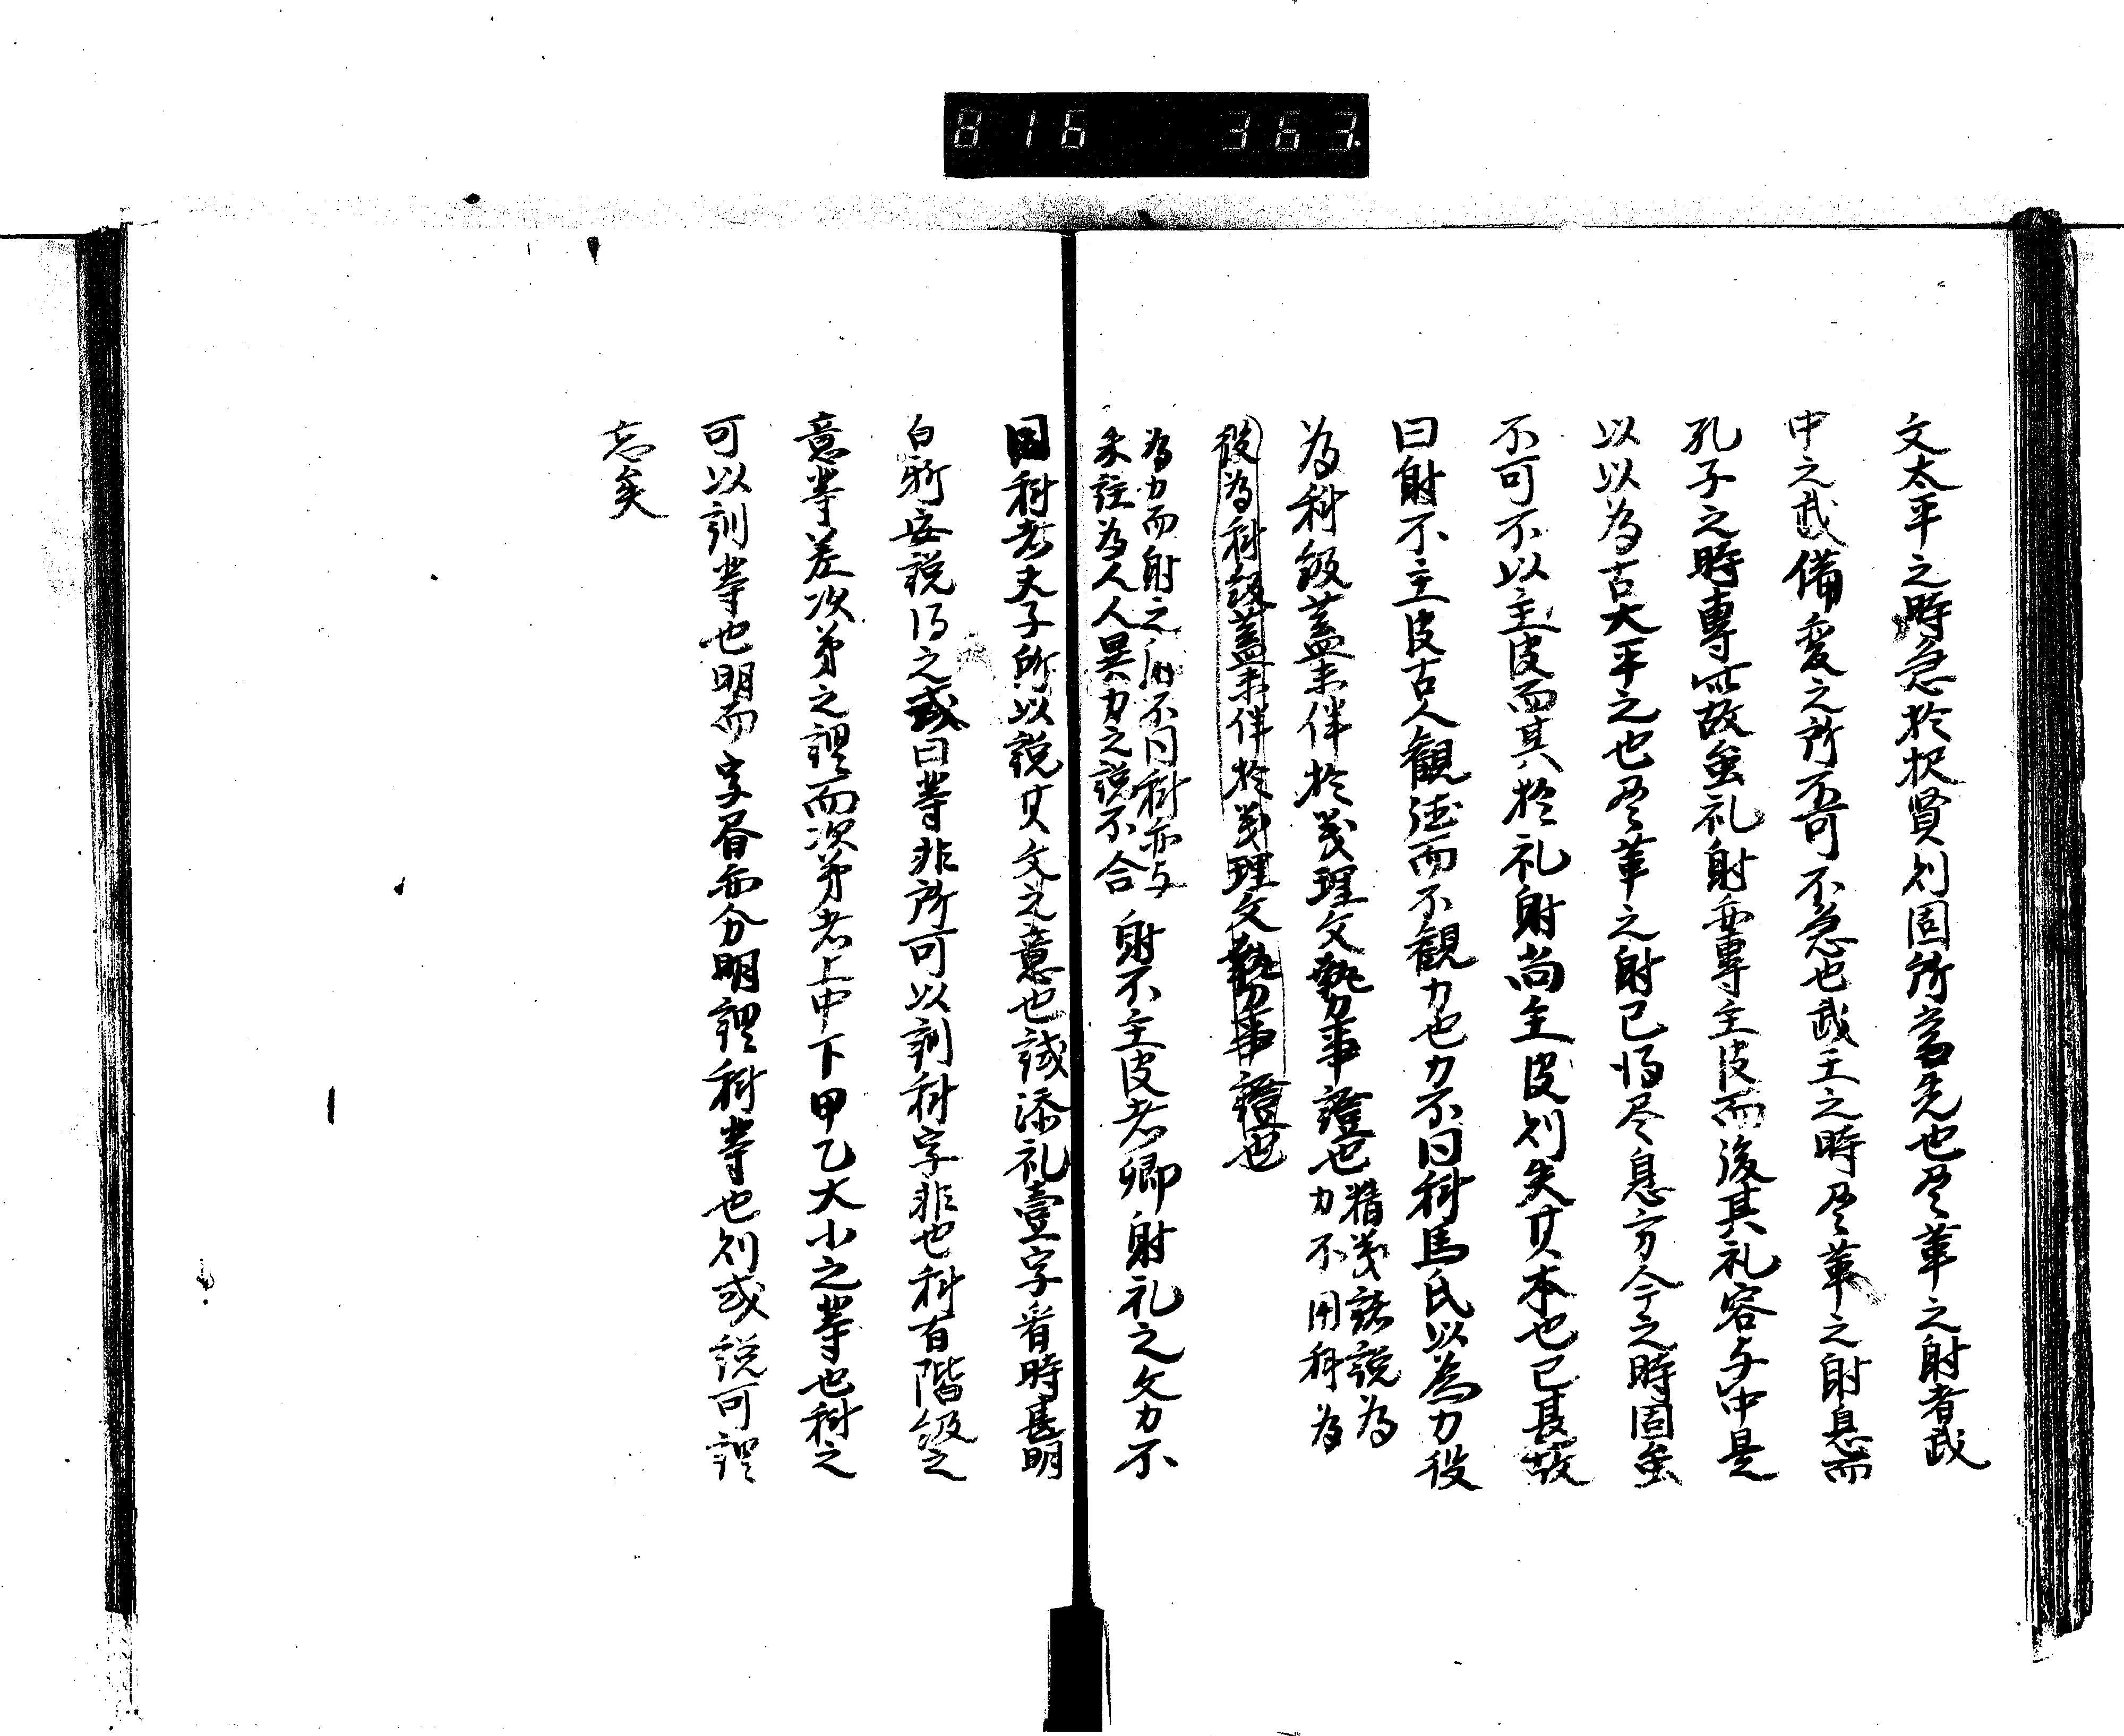 816 363
文太平之時急於択賢則固所當先也尽革之射者武
中之武備変之所不可不急也武王之時尽革之射息而
孔子之時専此故虽礼射亦専主皮而後其礼容与中是
以以為古大平之也尽革之射已得尽息方今之時固虽
不可不以主皮而其於礼射尚主皮則失其本也已甚故
曰射不主皮古人観徳而不観力也力不同科馬氏以為力役
為科級蓋未伴於義理文勢事證也 精義諸説為
力不用科為
役為科級蓋未伴於義理文勢事證也
為力而射之 不同科亦与
朱註為人人異力之説不合 射不主皮者郷射礼之文力不
同科者夫子所以説其文之意也誠添礼壹字看時甚明
白新安説得之或曰等非所可以訓科字非也科有階級之
意等差次第之謂而次第者上中下甲乙大小之等也科之
可以訓等也明而字書亦分明謂科等也則或説可謂
忘矣